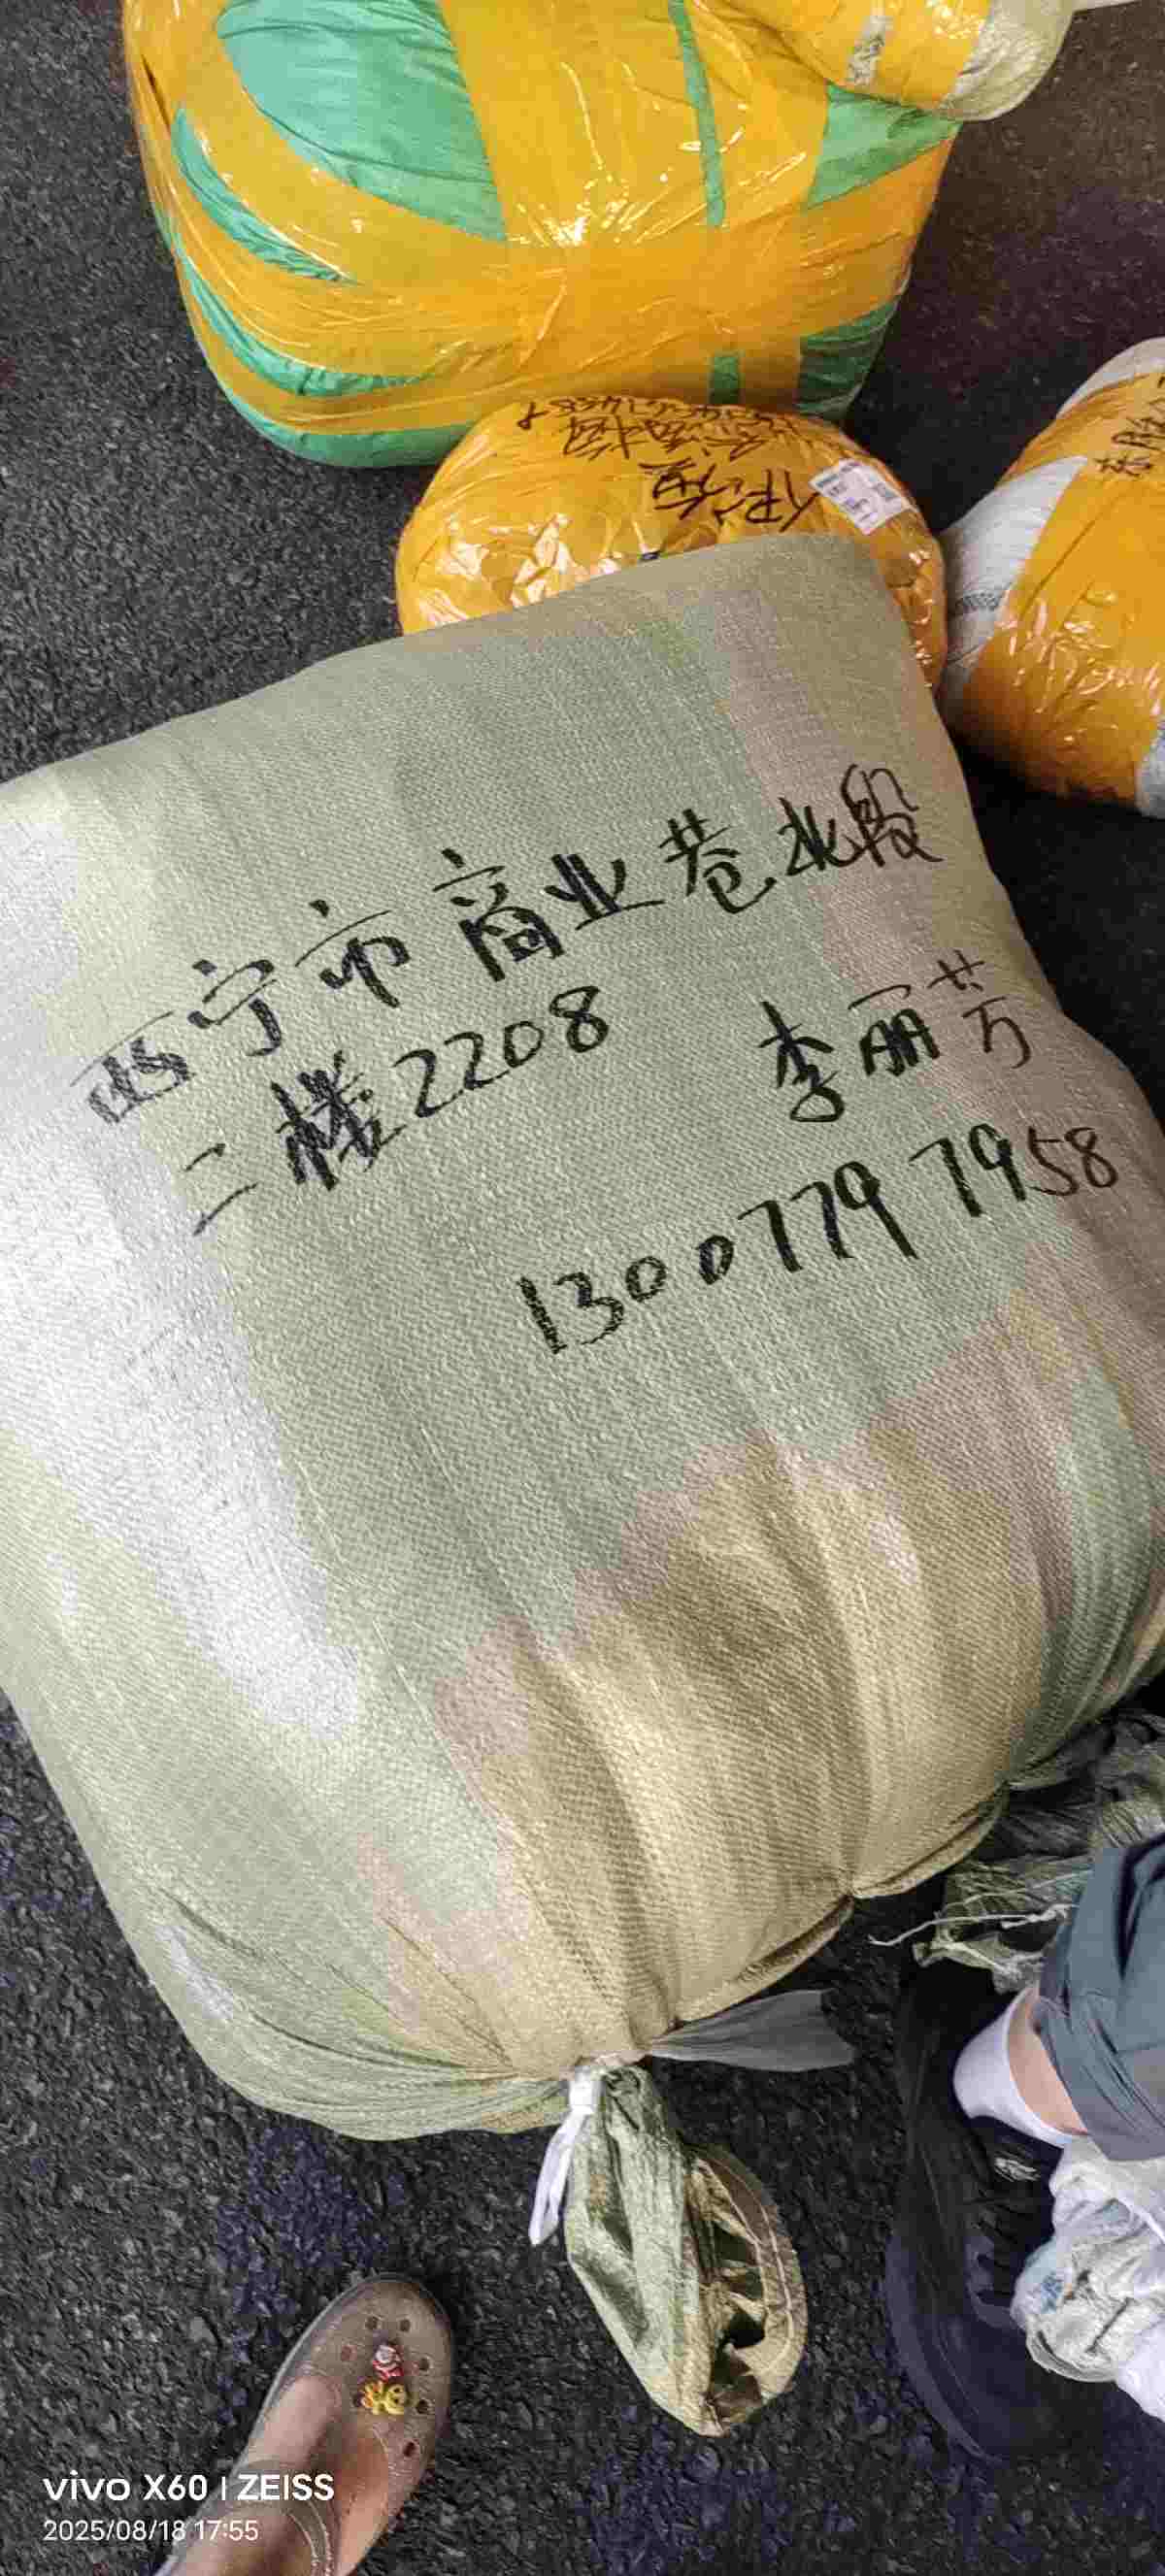 西宁市商业巷北段
二楼2208 李丽芳
13007797958
vivo X60 | ZEISS
2025/08/18 17:55